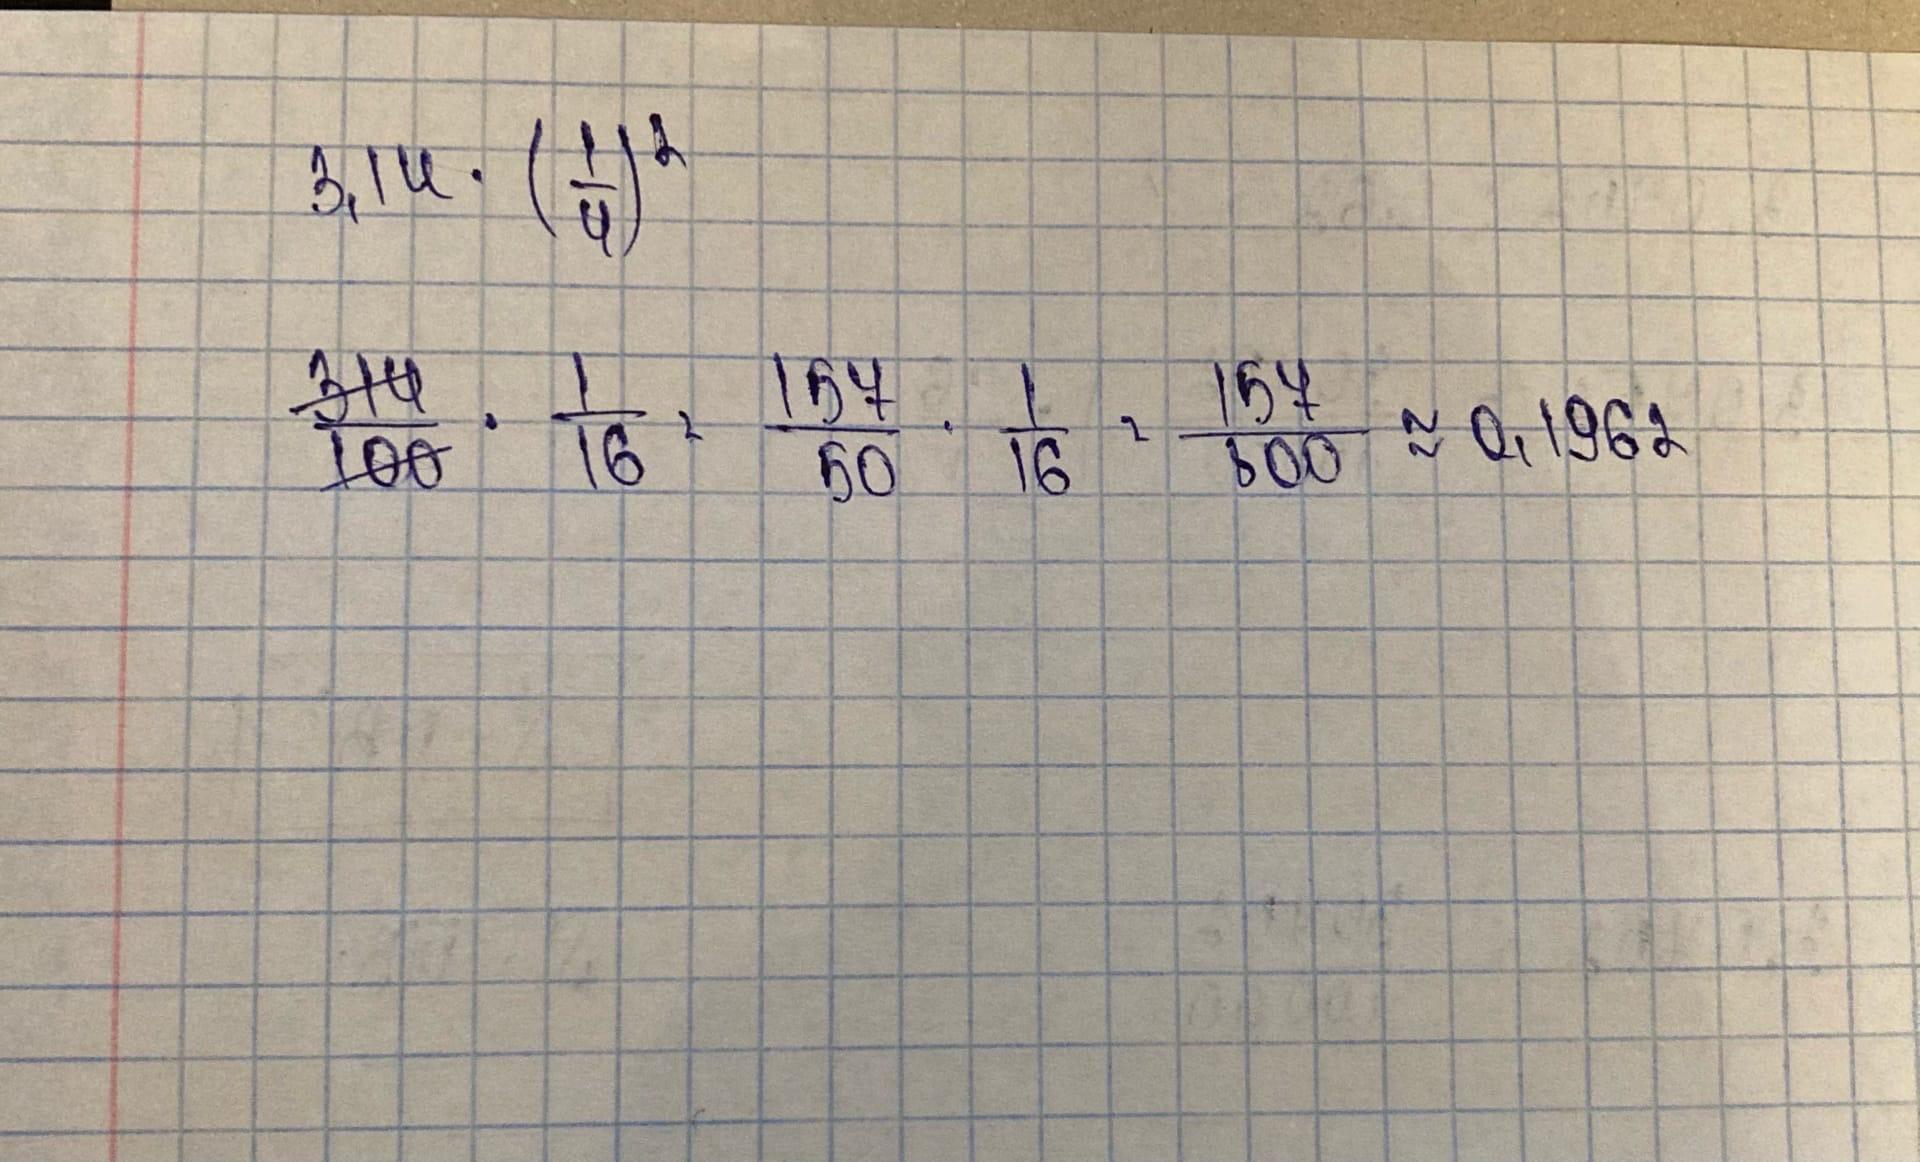 3,14 · (1/4)²
314/100 · 1/16 = 157/50 · 1/16 = 157/800 ≈ 0,1962